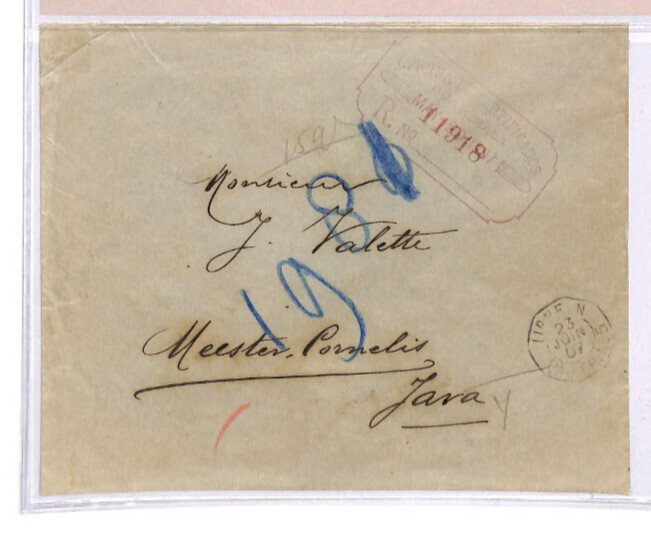 CERTIFICADOS
MAY
R. No. 11918
159
Monsieur
J. Valette
198
Meester-Cornelis
Java
LIGNE N
23
JUIN
07